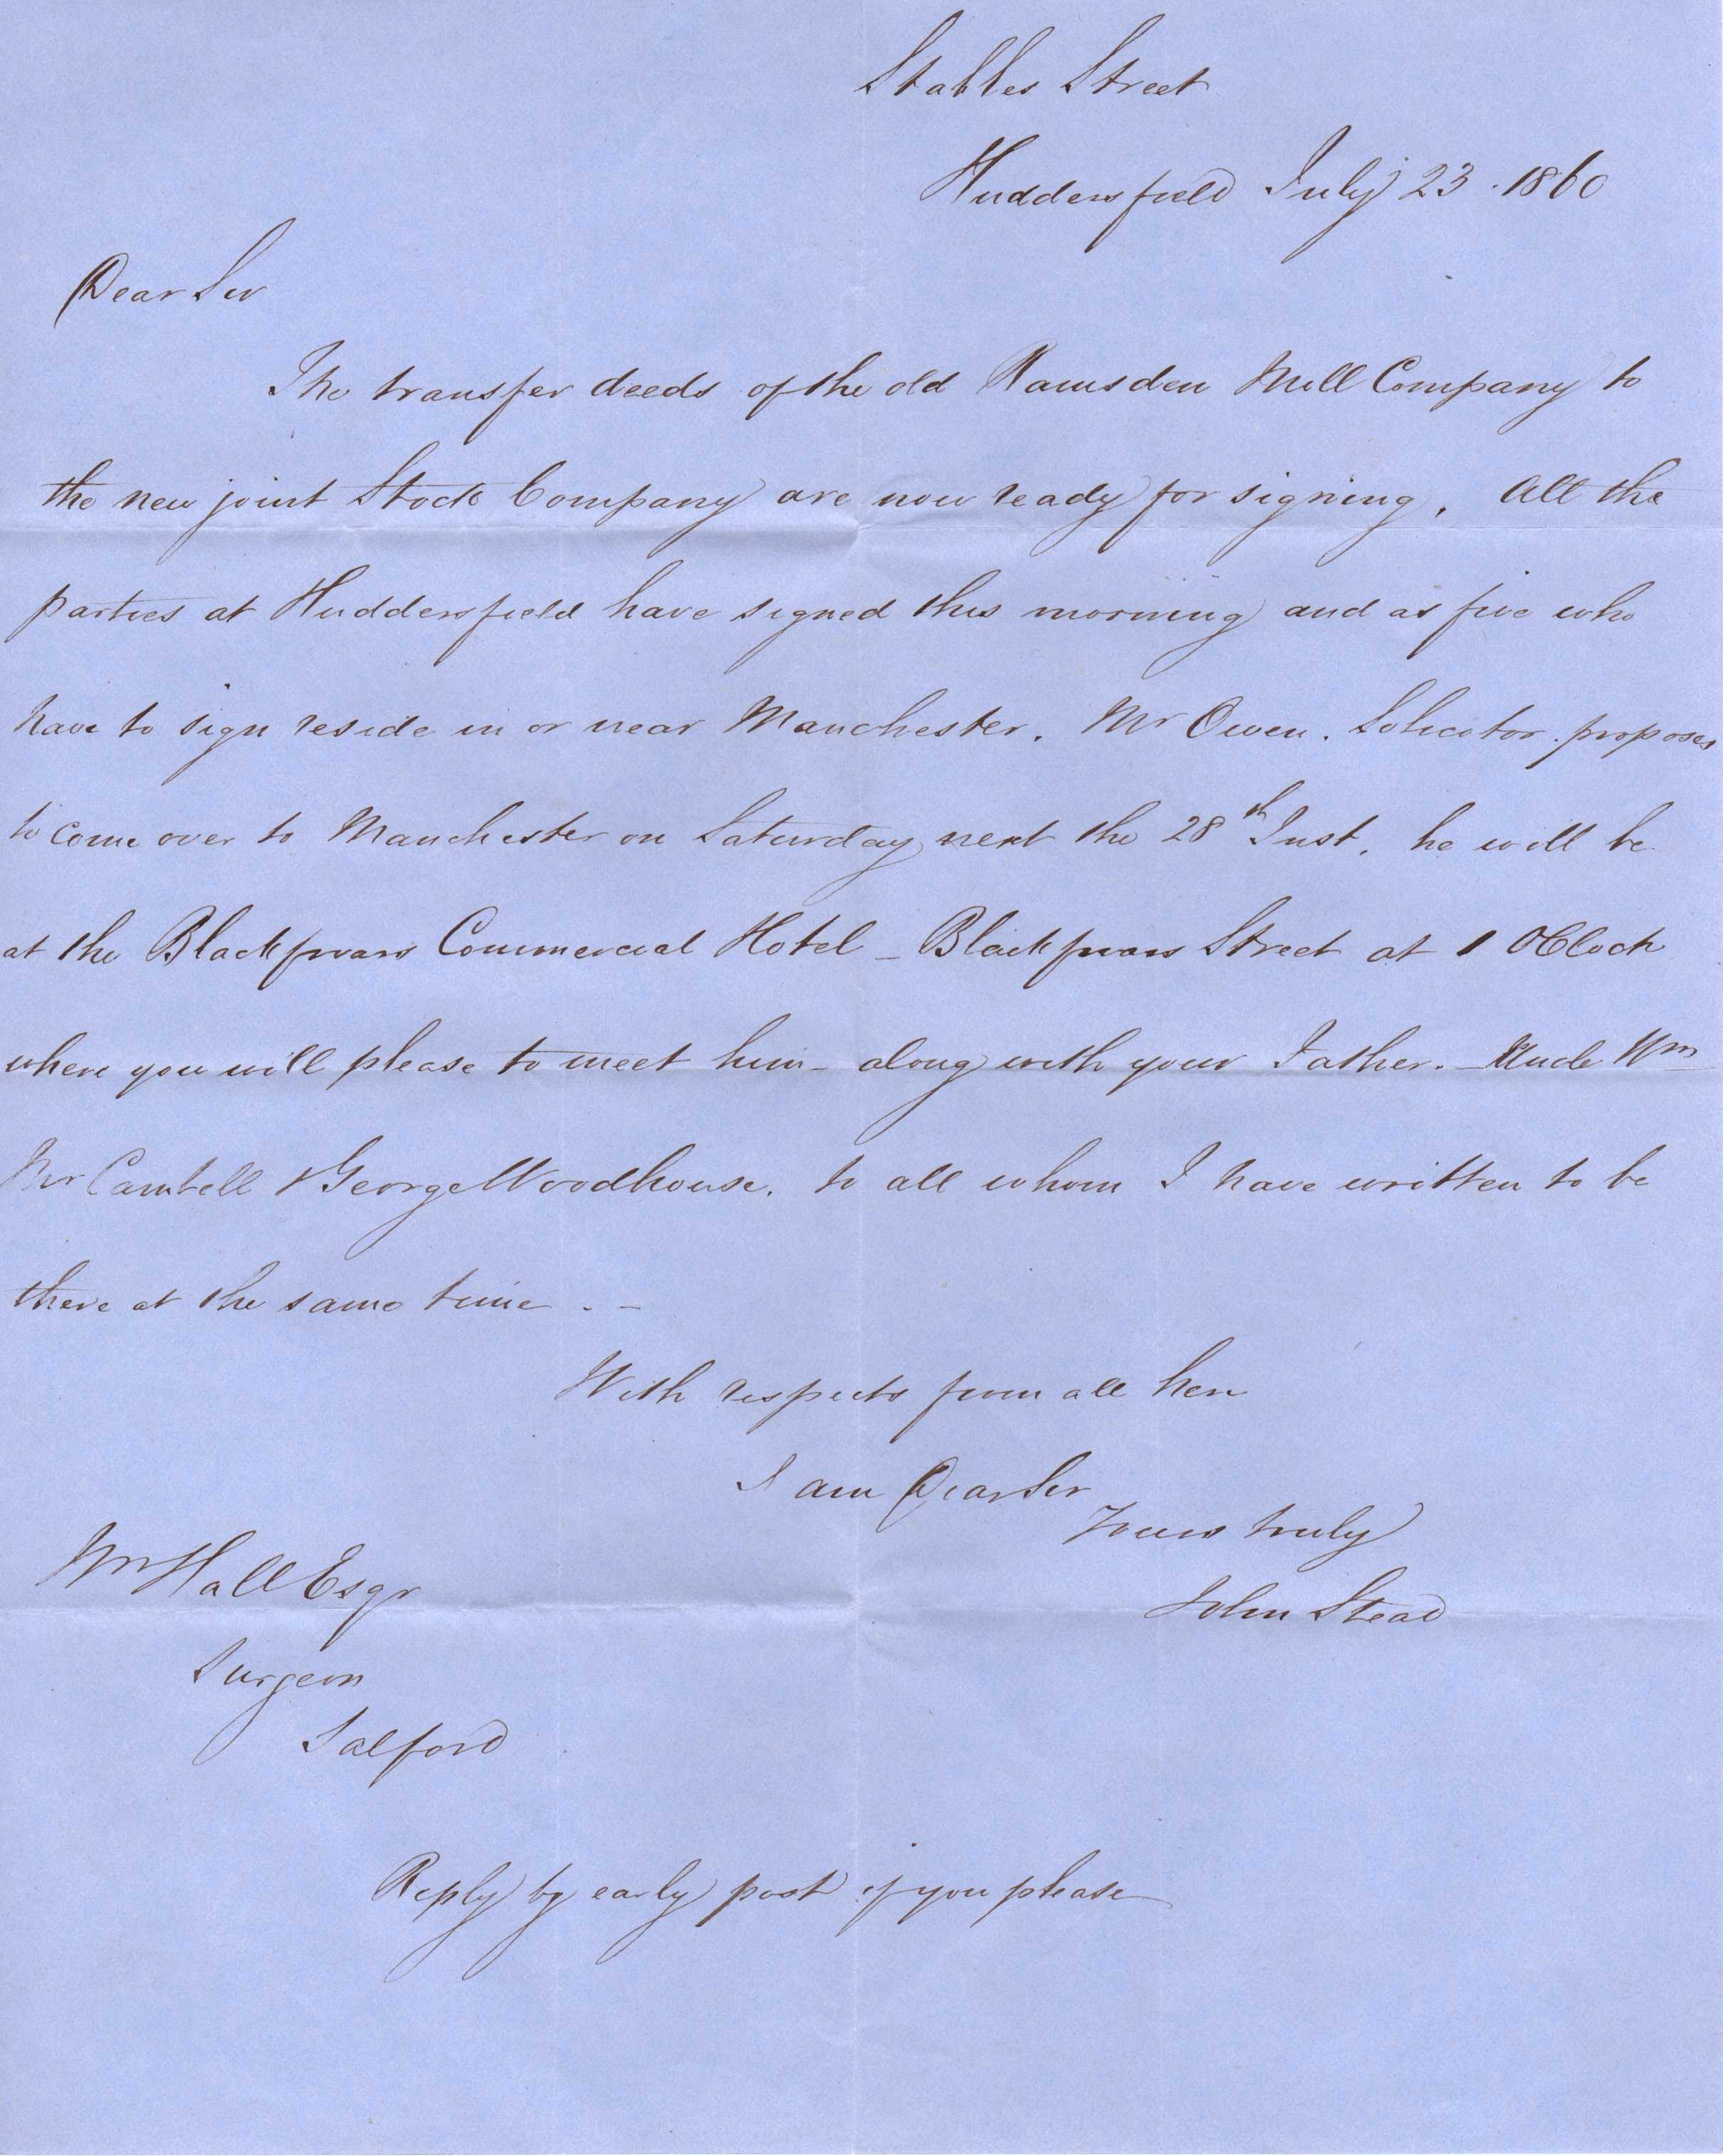 Stables Street
Huddersfield July 23. 1860
Dear Sir
The transfer deeds of the old Ramsden Mill Company to
the new joint Stock Company are now ready for signing. All the
parties at Huddersfield have signed this morning and as five who
have to sign reside in or near Manchester. Mr Owen. Solicitor. proposes
to come over to Manchester on Saturday next the 28th Inst. he will be
at the Blackfriars Commercial Hotel - Blackfriars Street at 1 OClock
where you will please to meet him - along with your Father. - Uncle Wm
Mr Cambell & George Woodhouse. to all whom I have written to be
there at the same time . -
With respects from all here
I am Dear Sir
Yours truly
John Stead
Wm Hall Esqr
Surgeon
Salford
Reply by early post if you please